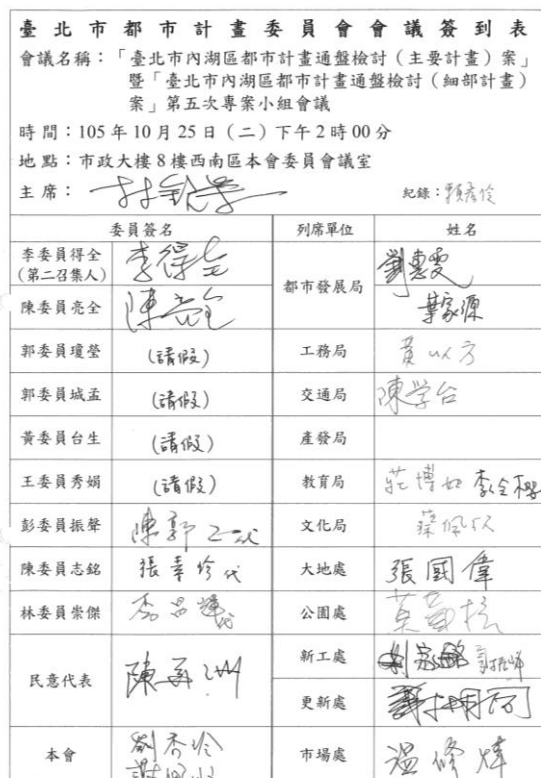 臺北市都市計畫委員會會議簽到表
會議名稱：「臺北市內湖區都市計畫通盤檢討（主要計畫）案」
暨「臺北市內湖區都市計畫通盤檢討（細部計畫）
案」第五次專案小組會議
時間：105年10月25日（二）下午2時00分
地點：市政大樓8樓西南區本會委員會議室
主席： 紀錄：賴彥伶
委員簽名 列席單位 姓名
李委員得全
(第二召集人) 李得全 都市發展局 劉惠雯
陳委員亮全 陳亮全 葉家源
郭委員瓊瑩 (請假) 工務局 黃以方
郭委員城孟 (請假) 交通局 陳学台
黃委員台生 (請假) 產發局
王委員秀娟 (請假) 教育局 莊博如
彭委員振聲 代 文化局 蔡佩欣
陳委員志銘 張幸珍代 大地處 張國偉
林委員崇傑 代 公園處
民意代表 新工處
更新處
本會 劉秀玲 市場處 溫修煒